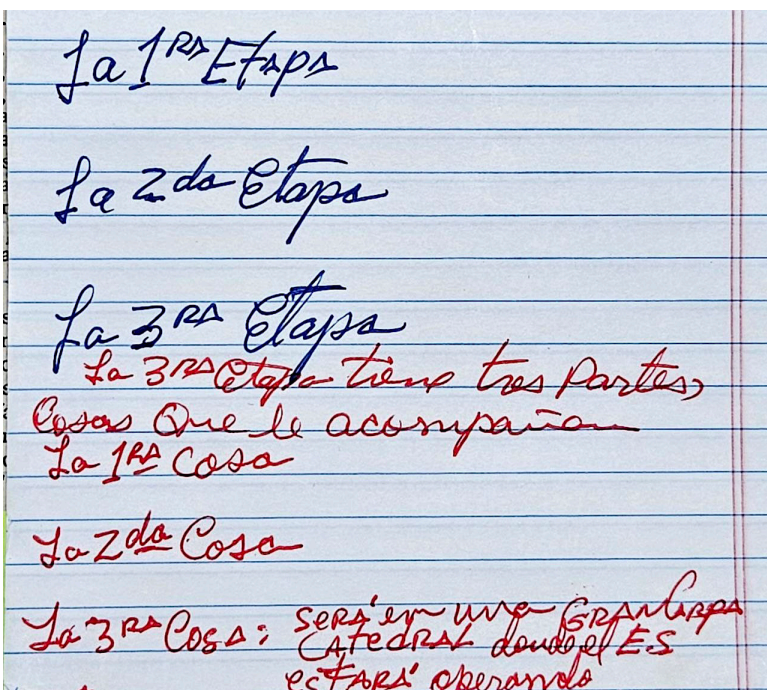 La 1RA Etapa
La 2da Etapa
La 3RA Etapa
La 3RA Etapa tiene tres Partes,
Cosas Que le acompañan
La 1RA Cosa
La 2da Cosa
La 3RA Cosa: SERÁ en una GRAN Carpa
CATEDRAL donde el E.S
ESTARÁ operando